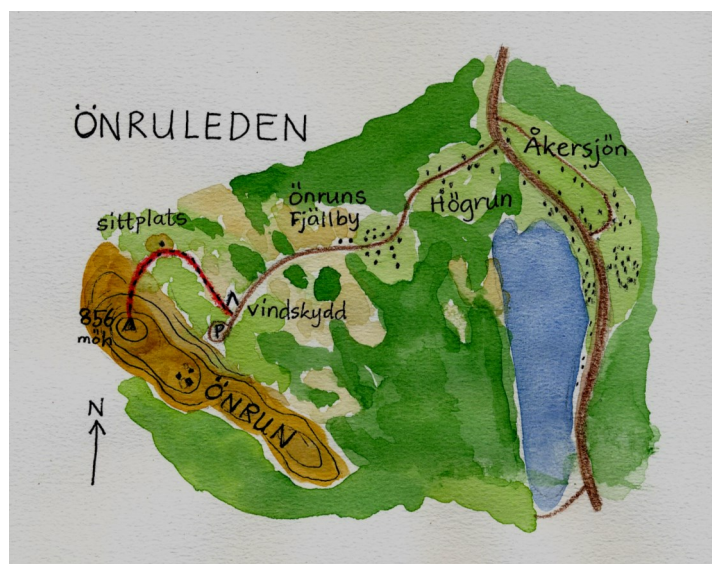 ÖNRULEDEN
Åkersjön
Önruns
Fjällby
Högrun
sittplats
vindskydd
856
möh
P
ÖNRUN
N